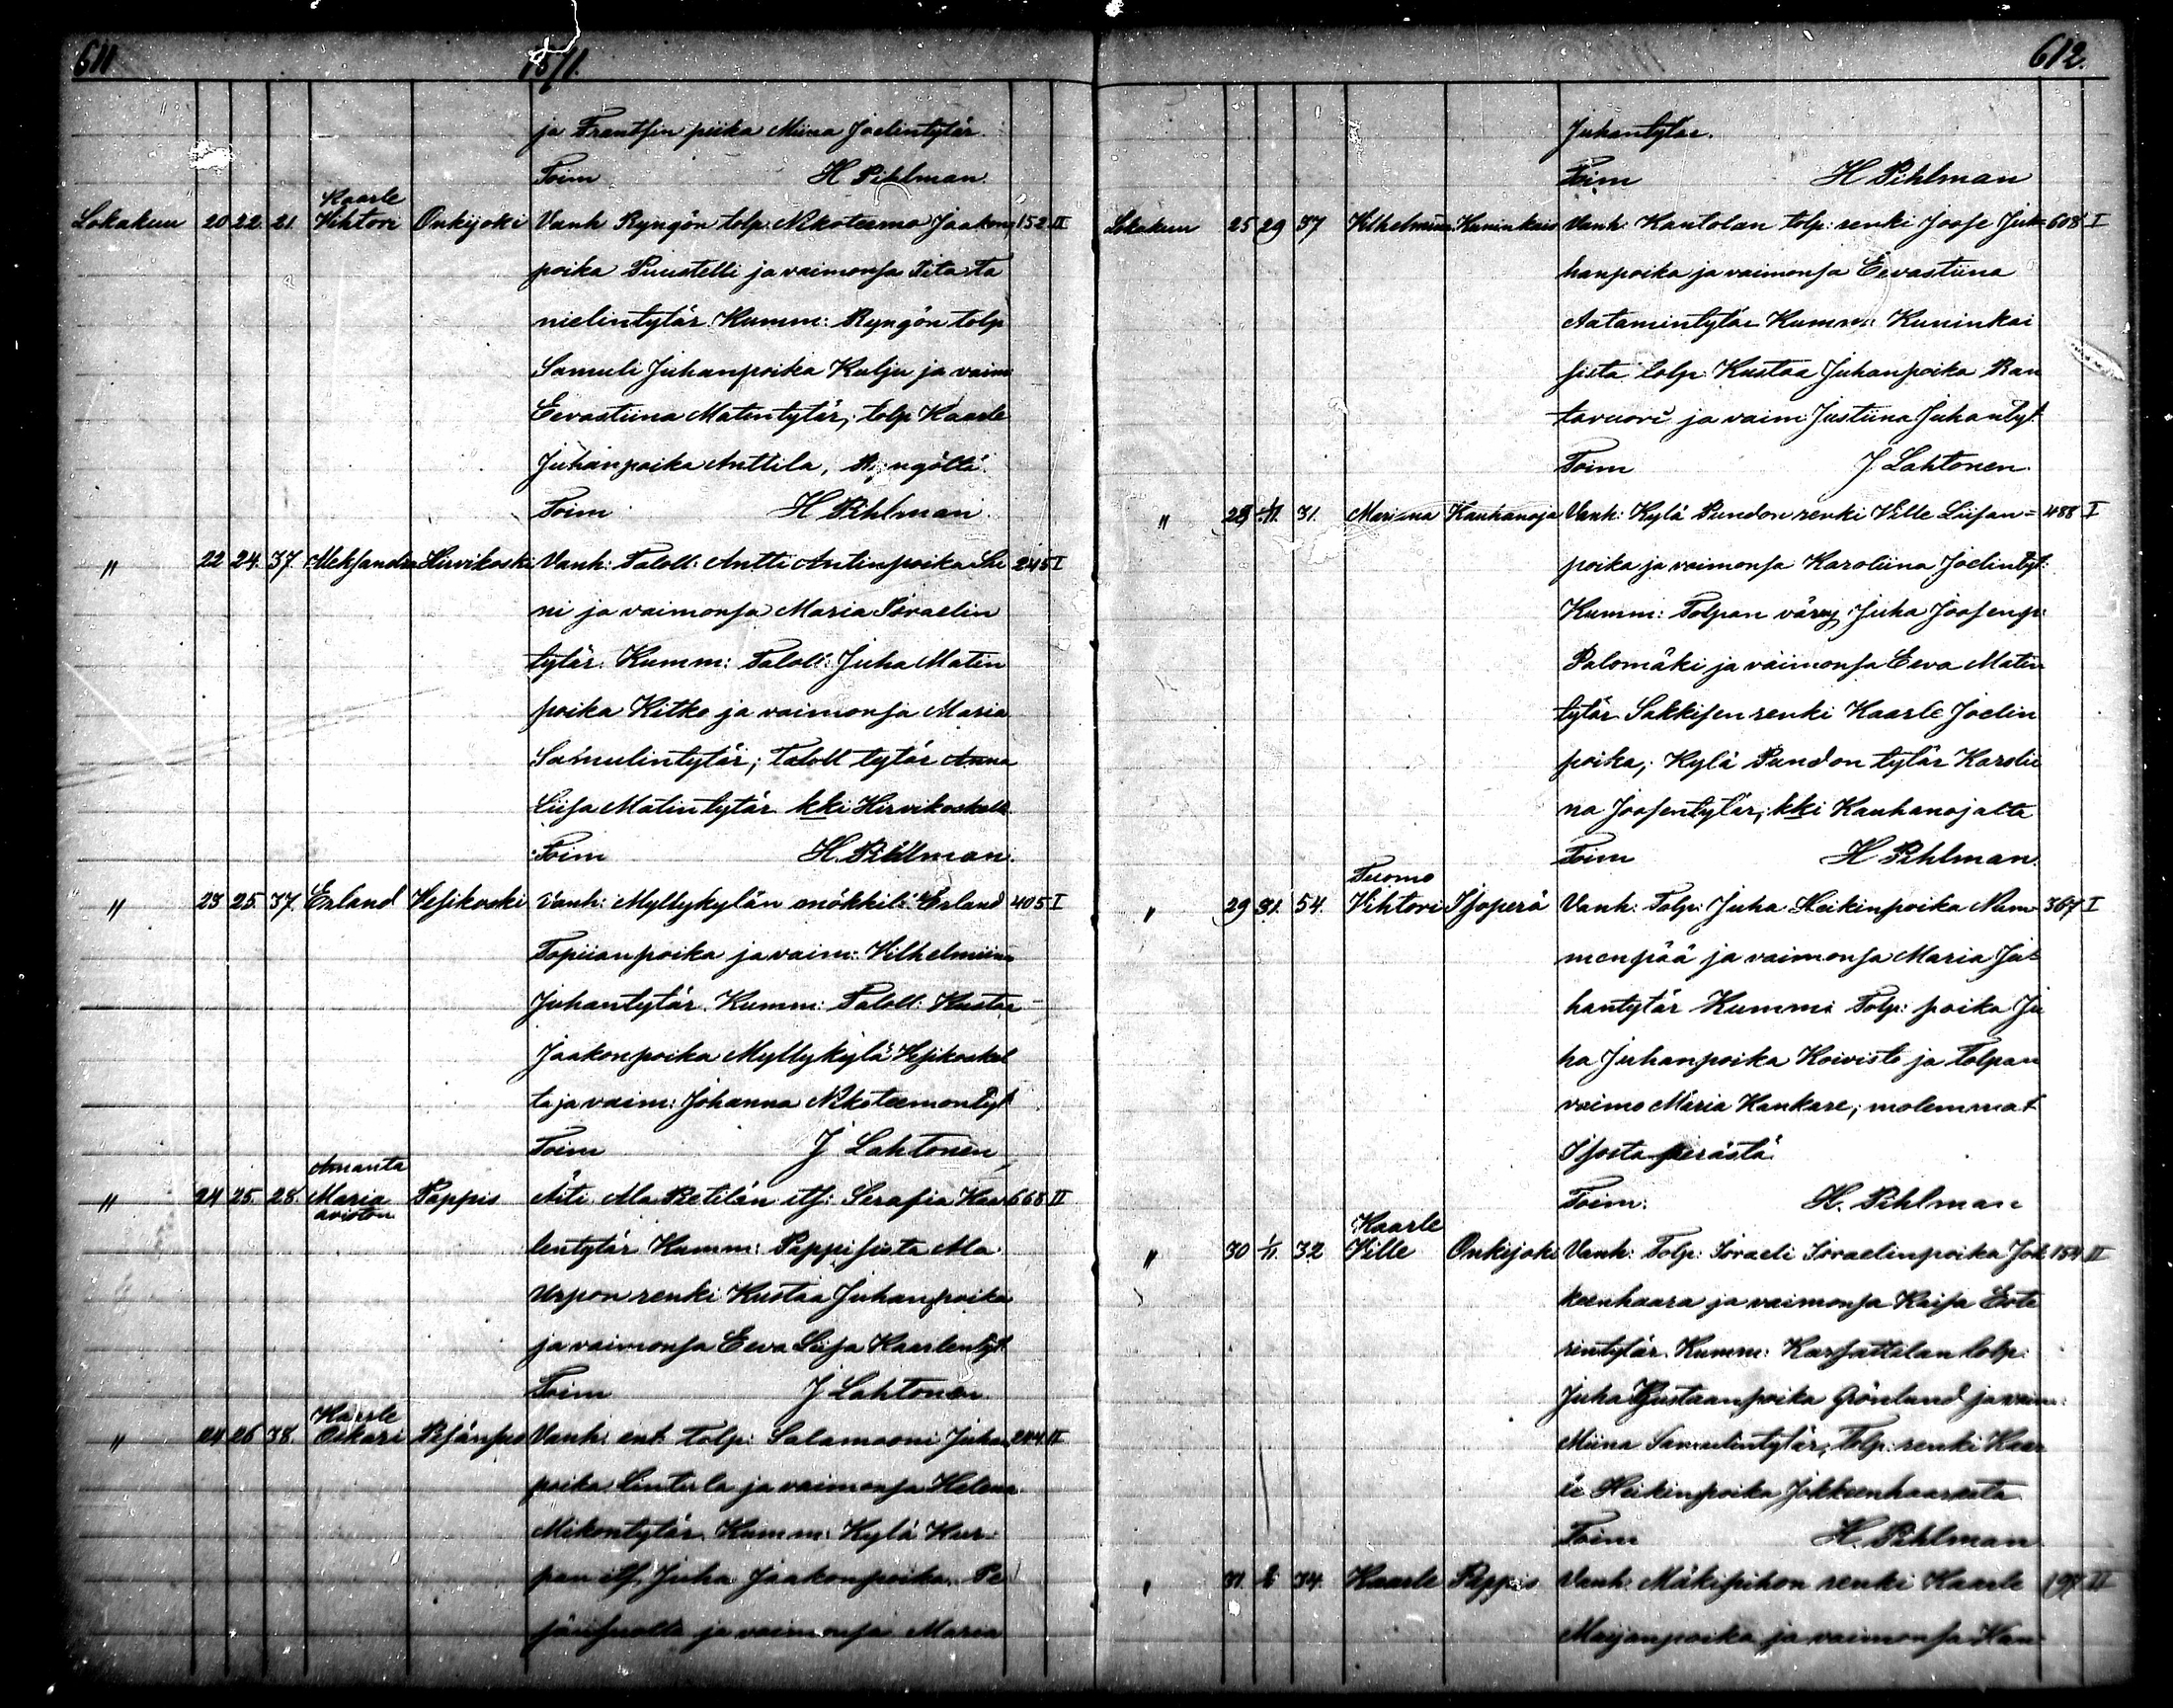 611
1871.
ja Frantsin piika Miina Joelintytär
Toim H Pihlman.
Kaarle
Lokakuu 20 22. 21. Vihtori Onkijoki Vanh Ryngön tolp. Nikoteemo Jaakon 152 II
poika Puustelli ja vaimonsa Iita Ta
nielintytär. Kumm: Ryngön tolp
Samuli Juhanpoika Kalju ja vaim
Eevastiina Matintytär; tolp Kaarle
Juhanpoika Anttila, Ryngöltä.
Toim H Pihlman.
" 22 24. 37. Aleksandra Hirvikoski Vanh: Taloll: Antti Antinpoika Lii 245 I
ni ja vaimonsa Maria Israelin
tytär. Kumm: Taloll: Juha Matin
poika Kitko ja vaimonsa Maria
Samulintytär; Taloll tytär Anna
Liisa Matintytär kki Hirvikoskelta
Toim H. Pihlman.
" 23 25. 37. Erland Vesikoski Vanh: Myllykylän mökkil: Erland 405 I
Topiianpoika ja vaim: Vilhelmiina
Juhantytär. Kumm: Taloll: Kustaa
Jaakonpoika Myllykylä Vesikoskel
ta ja vaim: Johanna Nikoteemontyt
Toim J Lahtonen
Amanta
" 24 25. 28. Maria Pappis Äiti Ala Pietilän itf: Serafia Kaar 668 II
avioton
lentytär Kumm: Pappisista Ala
Urpon renki Kustaa Juhanpoika
ja vaimonsa Eeva Liisa Kaarlentyt
Toim J Lahtonen
Kaarle
" 24 26 38. Oskari Vanh: ent. tolp: Salamooni Juhan 244 II
poika Lintula ja vaimonsa Helena
Mikontytär. Kumm: Kylä Kur-
pan itf. Juha Jaakonpoika Pe
ja vaimonsa Maria
612.
Juhantytär.
Toim H Pihlman
Lokakuu 25 29 37 Vilhelmiina Kuninkais Vanh: Kantolan tolp: renki Joose Ju= 608 I
hanpoika ja vaimonsa Eevastiina
Aatamintytär Kumm: Kuninkai
sista tolp. Kustaa Juhanpoika Ran
tavuori ja vaim Justiina Juhantyt.
Toim J Lahtonen.
" 28 1/11. 31. Mariana Kauhanoja Vanh: Kylä Pundon renki Ville Liisan= 488 I
poika ja vaimonsa Karoliina Joelintyt.
Kumm: Tolpan vävy Juha Joosenp.
Palomäki ja vaimonsa Eeva Matin
tytär Sakkisen renki Kaarle Joelin
poika; Kylä Pundon tytär Karolii
na Joosentytär; kki Kauhanojalta
Toim H Pihlman.
Tuomo
" 29 31. 54. Vihtori Isoperä Vanh: Tolp: Juha Heikinpoika Num= 367 I
menpää ja vaimonsa Maria Ju=
hantytär Kummi Tolp: poika Ju
ha Juhanpoika Koivisto ja Tolpan
vaimo Maria Kankare; molemmat
Isosta perästä.
Toim: H. Pihlman
Kaarle
" 30 1/11. 32 Ville Onkijoki Vanh: Tolp: Israeli Israelinpoika Jok 154 II
keenhaara ja vaimonsa Kaisa Este
rintytär. Kumm: Karsattilan tolp.
Juha Kustaanpoika Grönland ja vaim:
Miina Samulintytär; Tolp: renki Kaar
le Heikinpoika Jokkeenhaarasta
Toim H. Pihlman
" 31. 34. Kaarle Pappis Vanh: Mäkipihon renki Kaarle 197 II
Maijanpoika ja vaimonsa Han